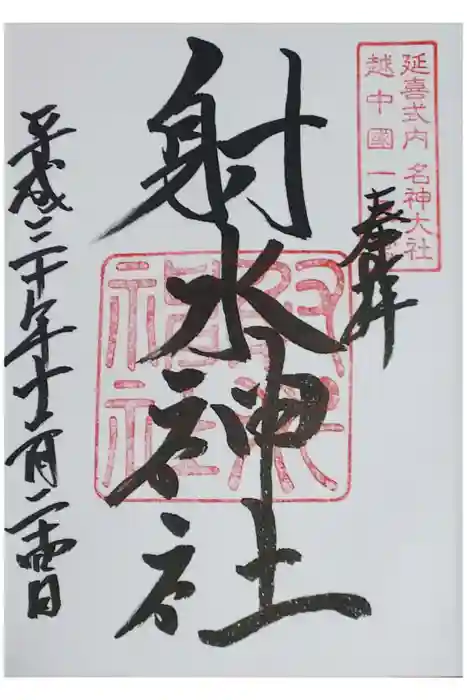 延喜式内 名神大社
越中國一
奉拝
射水神社
射水
神社
平成三十年十一月二十四日